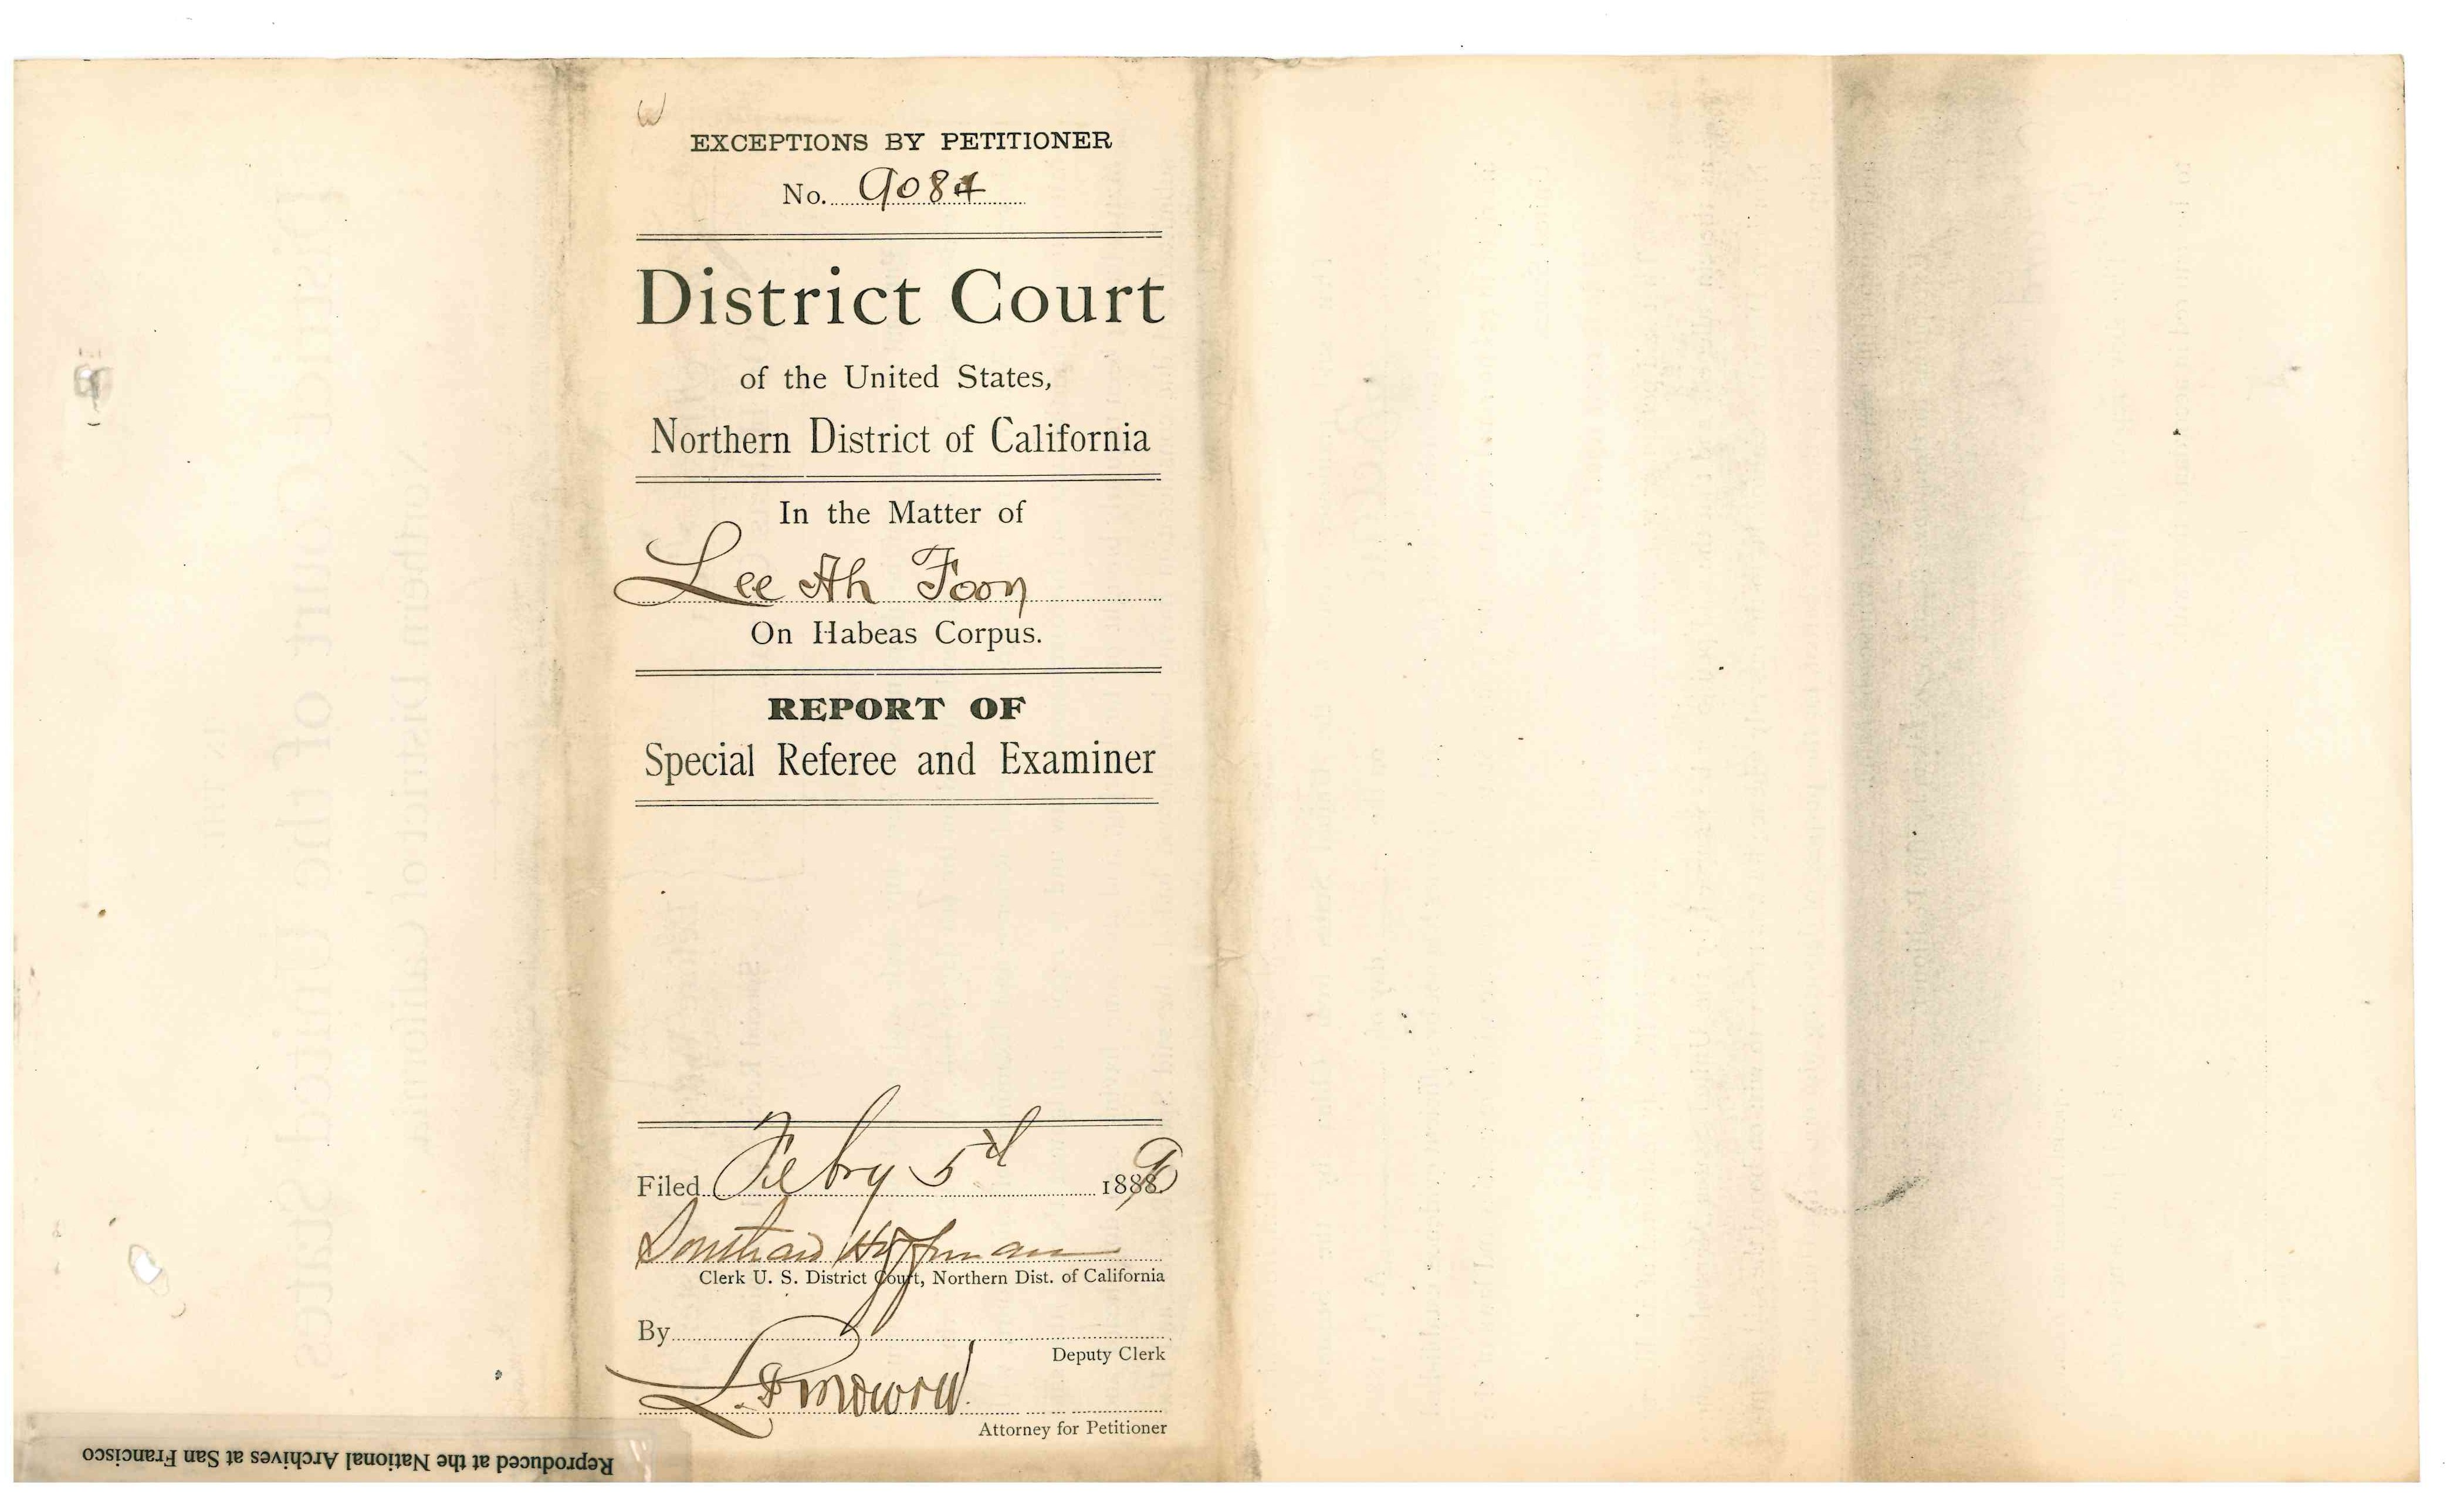 EXCEPTIONS BY PETITIONER
No. 9084
District Court
of the United States,
Northern District of California
In the Matter of
Lee Ah Foon
On Habeas Corpus.
REPORT OF
Special Referee and Examiner
Filed Febry 5th 1889
Southard Hoffman
Clerk U. S. District Court, Northern Dist. of California
By
Deputy Clerk
Attorney for Petitioner
Reproduced at the National Archives at San Francisco
District Court of the United States
Northern District of California